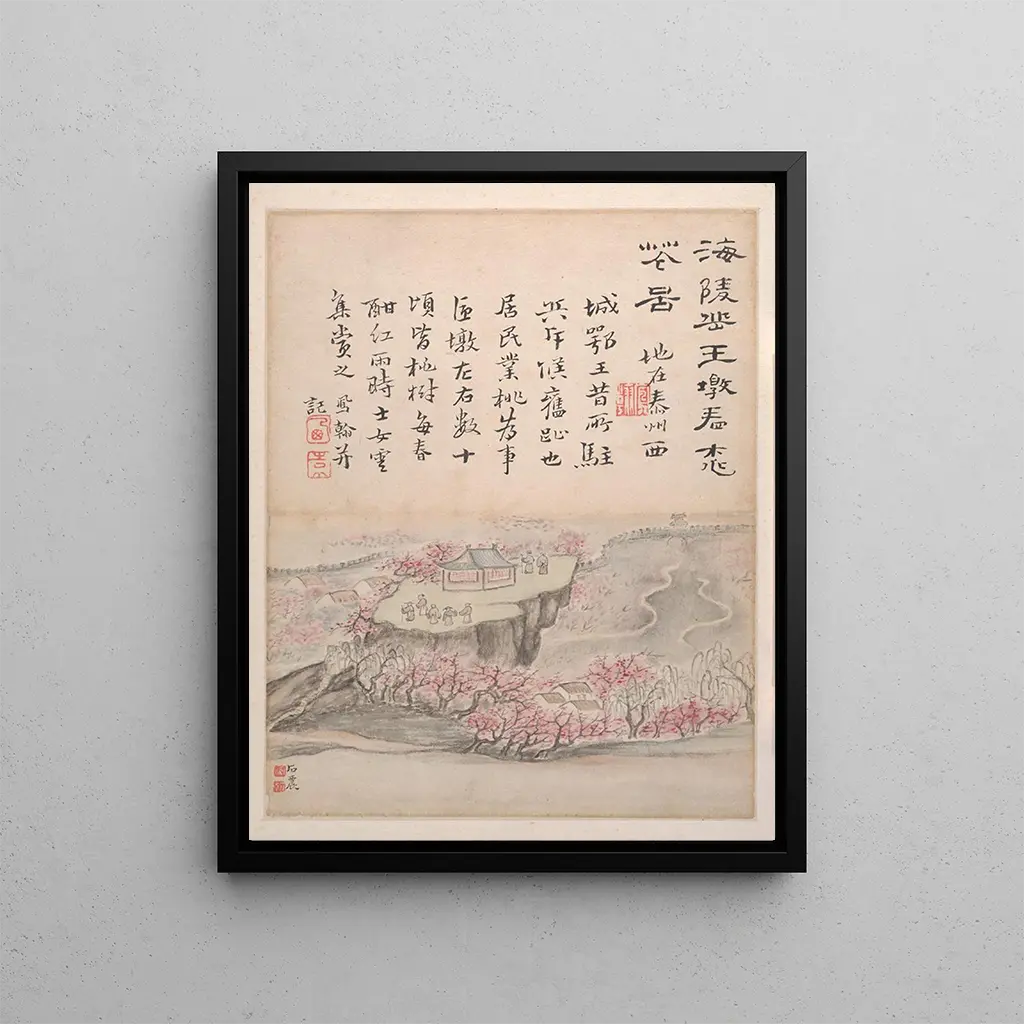 海陵岳王墩看桃
花圖 地在泰州西
城鄂王昔所駐
兵斥候舊趾也
居民業桃為事
匝墩左右數十
頃皆桃樹每春
酣紅雨時士女雲
集賞之 鳳翰并
記
石農